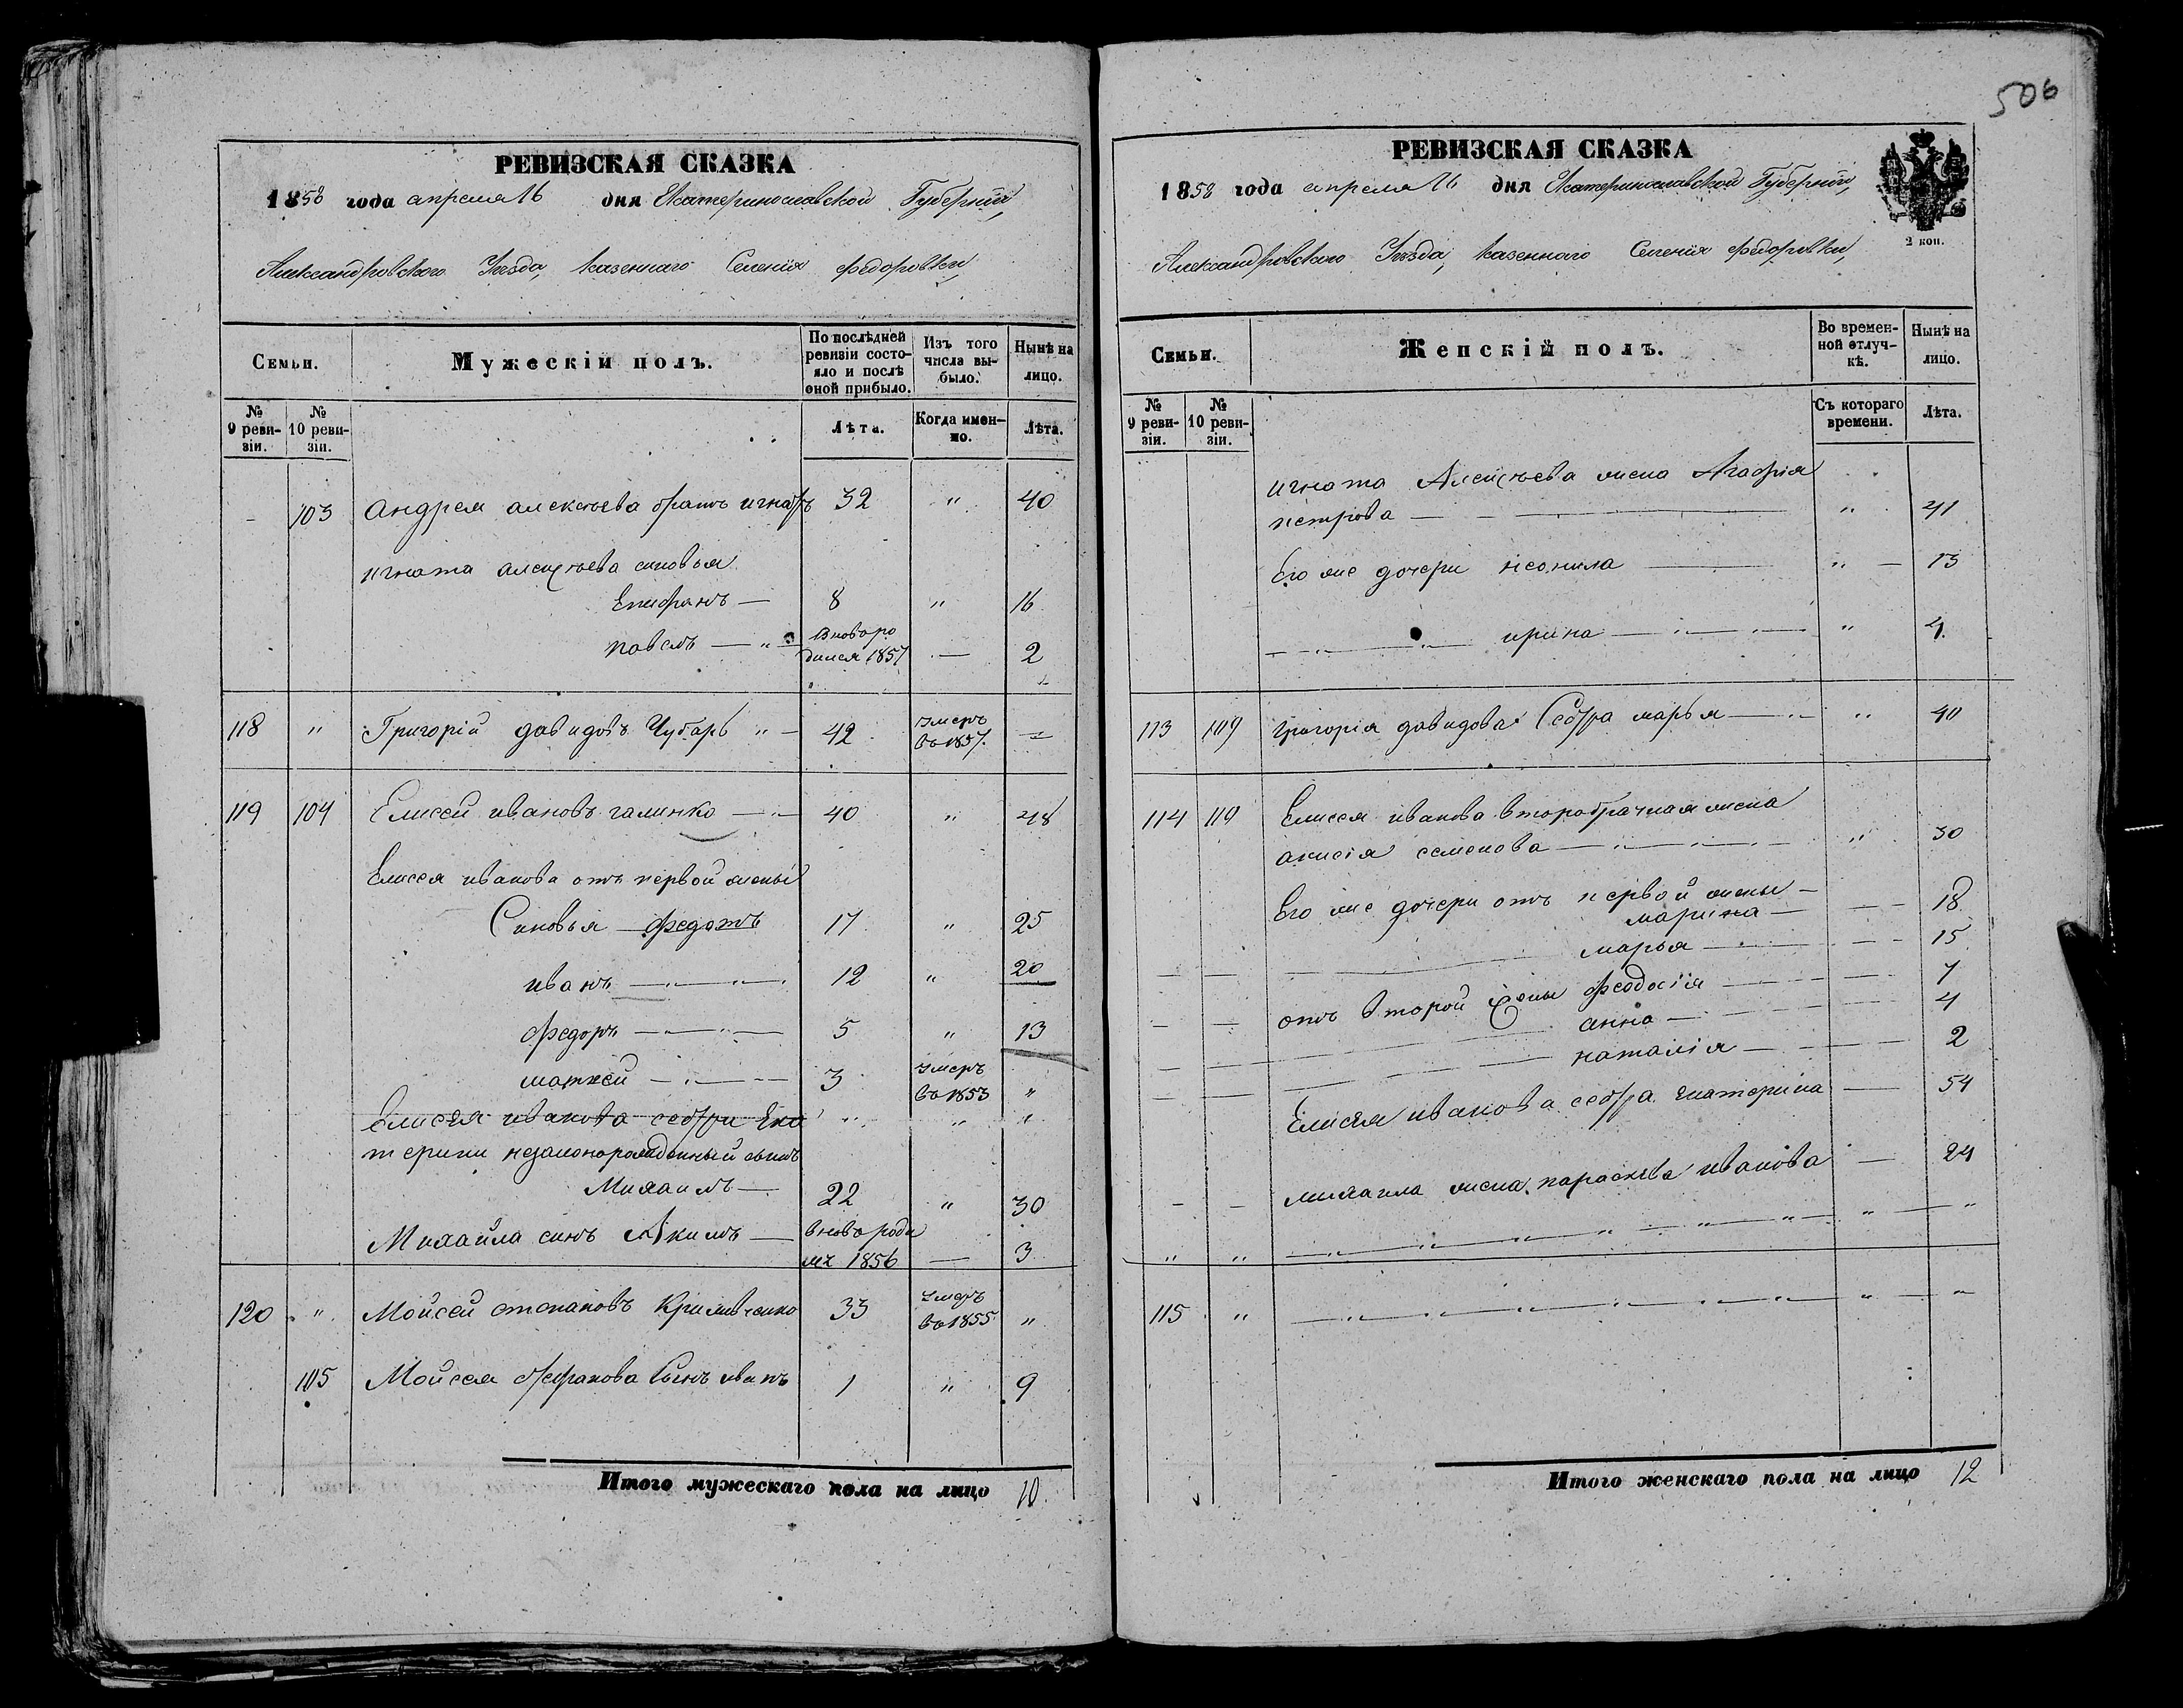 506
РЕВИЗСКАЯ СКАЗКА
1858 года апреля 16 дня Екатеринославской Губерніи,
Александровского Уезда, казеннаго Селенія Федоровки,
Семьи.
Мужескій полъ.
По послѣдней ревизіи состояло и послѣ оной прибыло.
Изъ того числа выбыло.
Нынѣ на лицо.
№ 9 ревизіи.
№ 10 ревизіи.
Лѣта.
Когда именно.
Лѣта.
- 103 Андрея алексѣева братъ игнатъ 32 " 40
игната алексѣева сыновья
Епифанъ — 8 " 16
павелъ — " — вновь родился 1857 — 2
118 " Григорій давидовъ Чубарь " - 42 умеръ въ 1857. —
119 104 Елисей ивановъ галинко — 40 " 48
Елисея иванова отъ первой жены
Синовья федотъ 17 " 25
иванъ — " — " 12 " 20
федоръ — " — 5 " 13
матвей — " — 3 умеръ въ 1853 "
Елисея иванова сестри Ека " " "
терини незаконорожденный сынъ
Михаилъ — 22 " 30
Михаила синъ Акимъ — вновь роди
лся 1856 — 3
120 " Мойсей степановъ 33 умеръ въ 1855 "
105 Мойсея стефанова сынъ иванъ 1 " 9
Итого мужескаго пола на лицо 10.
РЕВИЗСКАЯ СКАЗКА
1858 года апреля 16 дня Екатеринославской Губерніи,
Александровского Уезда, казеннаго Селенія Федоровки,
2 коп.
Семьи.
Женскій полъ.
Во временной отлучкѣ.
Нынѣ на лицо.
№ 9 ревизіи.
№ 10 ревизіи.
Съ котораго времени.
Лѣта.
игната Алексѣева жена Агафія
петрова — " 41
Его же дочери неонила — " — 13
ирина — " — " 4
113 109 григорія давидова Сестра марья — " " 40
114 110 Елисея иванова второбрачная жена
анисія семенова — " — " 30
Его же дочери отъ первой жены —
марина — 18
марья — 15
отъ второй жены феодосія — 7
анна — 4
наталія — 2
Елисея иванова сестра екатерина — 54
михаила жена параскева иванова — 24
" " — " — " — " — " — " — "
115 " — " — " — " — " — " — "
Итого женскаго пола на лицо 12